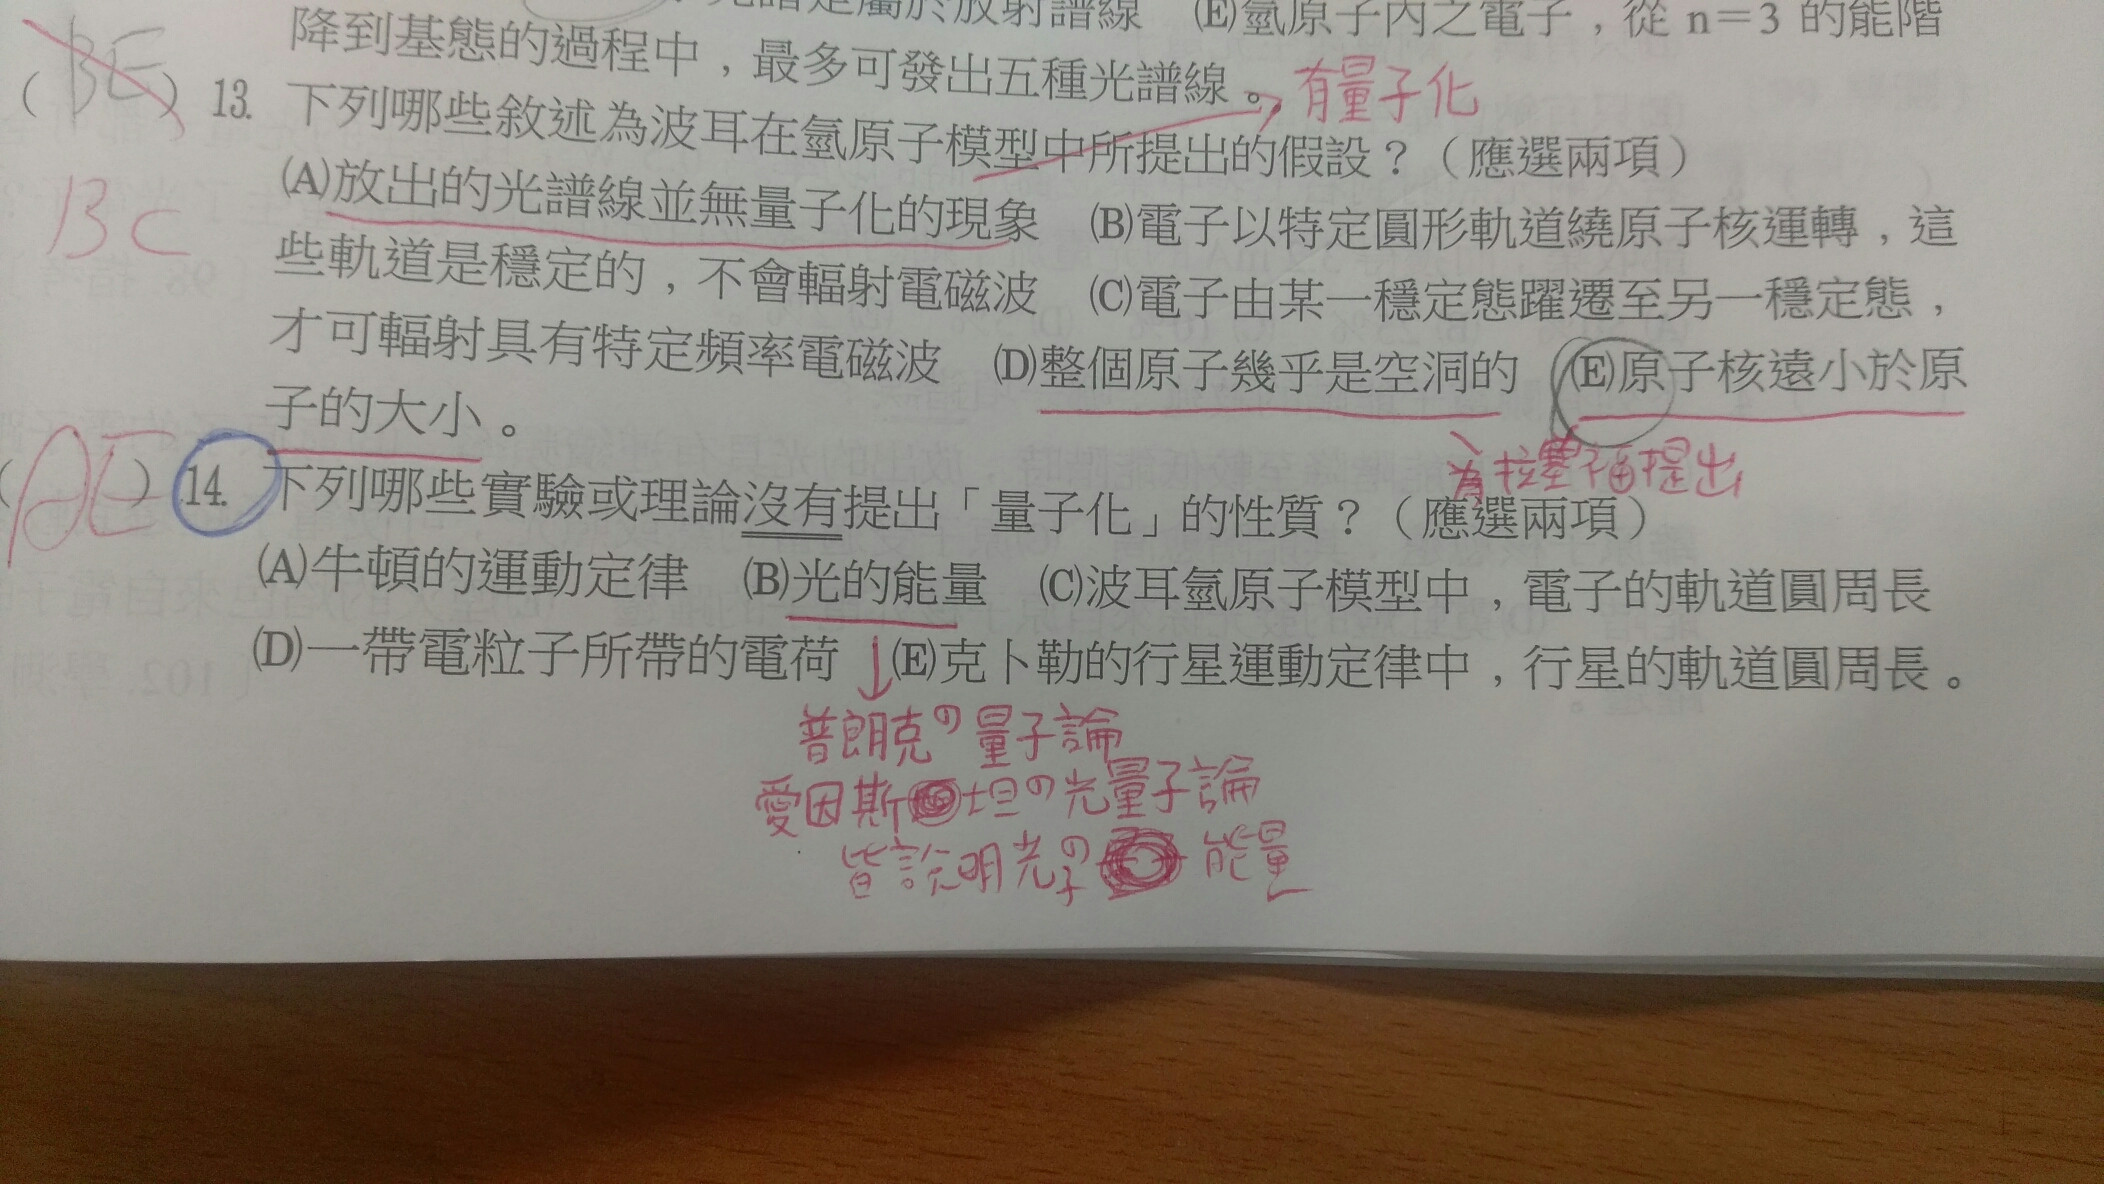 光譜是屬於放射譜線 (E)氫原子內之電子，從 n＝3 的能階
降到基態的過程中，最多可發出五種光譜線。
有量子化
(BE) 13. 下列哪些敘述為波耳在氫原子模型中所提出的假設？（應選兩項）
BC
(A)放出的光譜線並無量子化的現象 (B)電子以特定圓形軌道繞原子核運轉，這
些軌道是穩定的，不會輻射電磁波 (C)電子由某一穩定態躍遷至另一穩定態，
才可輻射具有特定頻率電磁波 (D)整個原子幾乎是空洞的 (E)原子核遠小於原
子的大小。
為拉塞福提出
(AE) 14. 下列哪些實驗或理論沒有提出「量子化」的性質？（應選兩項）
(A)牛頓的運動定律 (B)光的能量 (C)波耳氫原子模型中，電子的軌道圓周長
(D)一帶電粒子所帶的電荷 (E)克卜勒的行星運動定律中，行星的軌道圓周長。
普朗克の量子論
愛因斯坦の光量子論
皆說明光子の能量